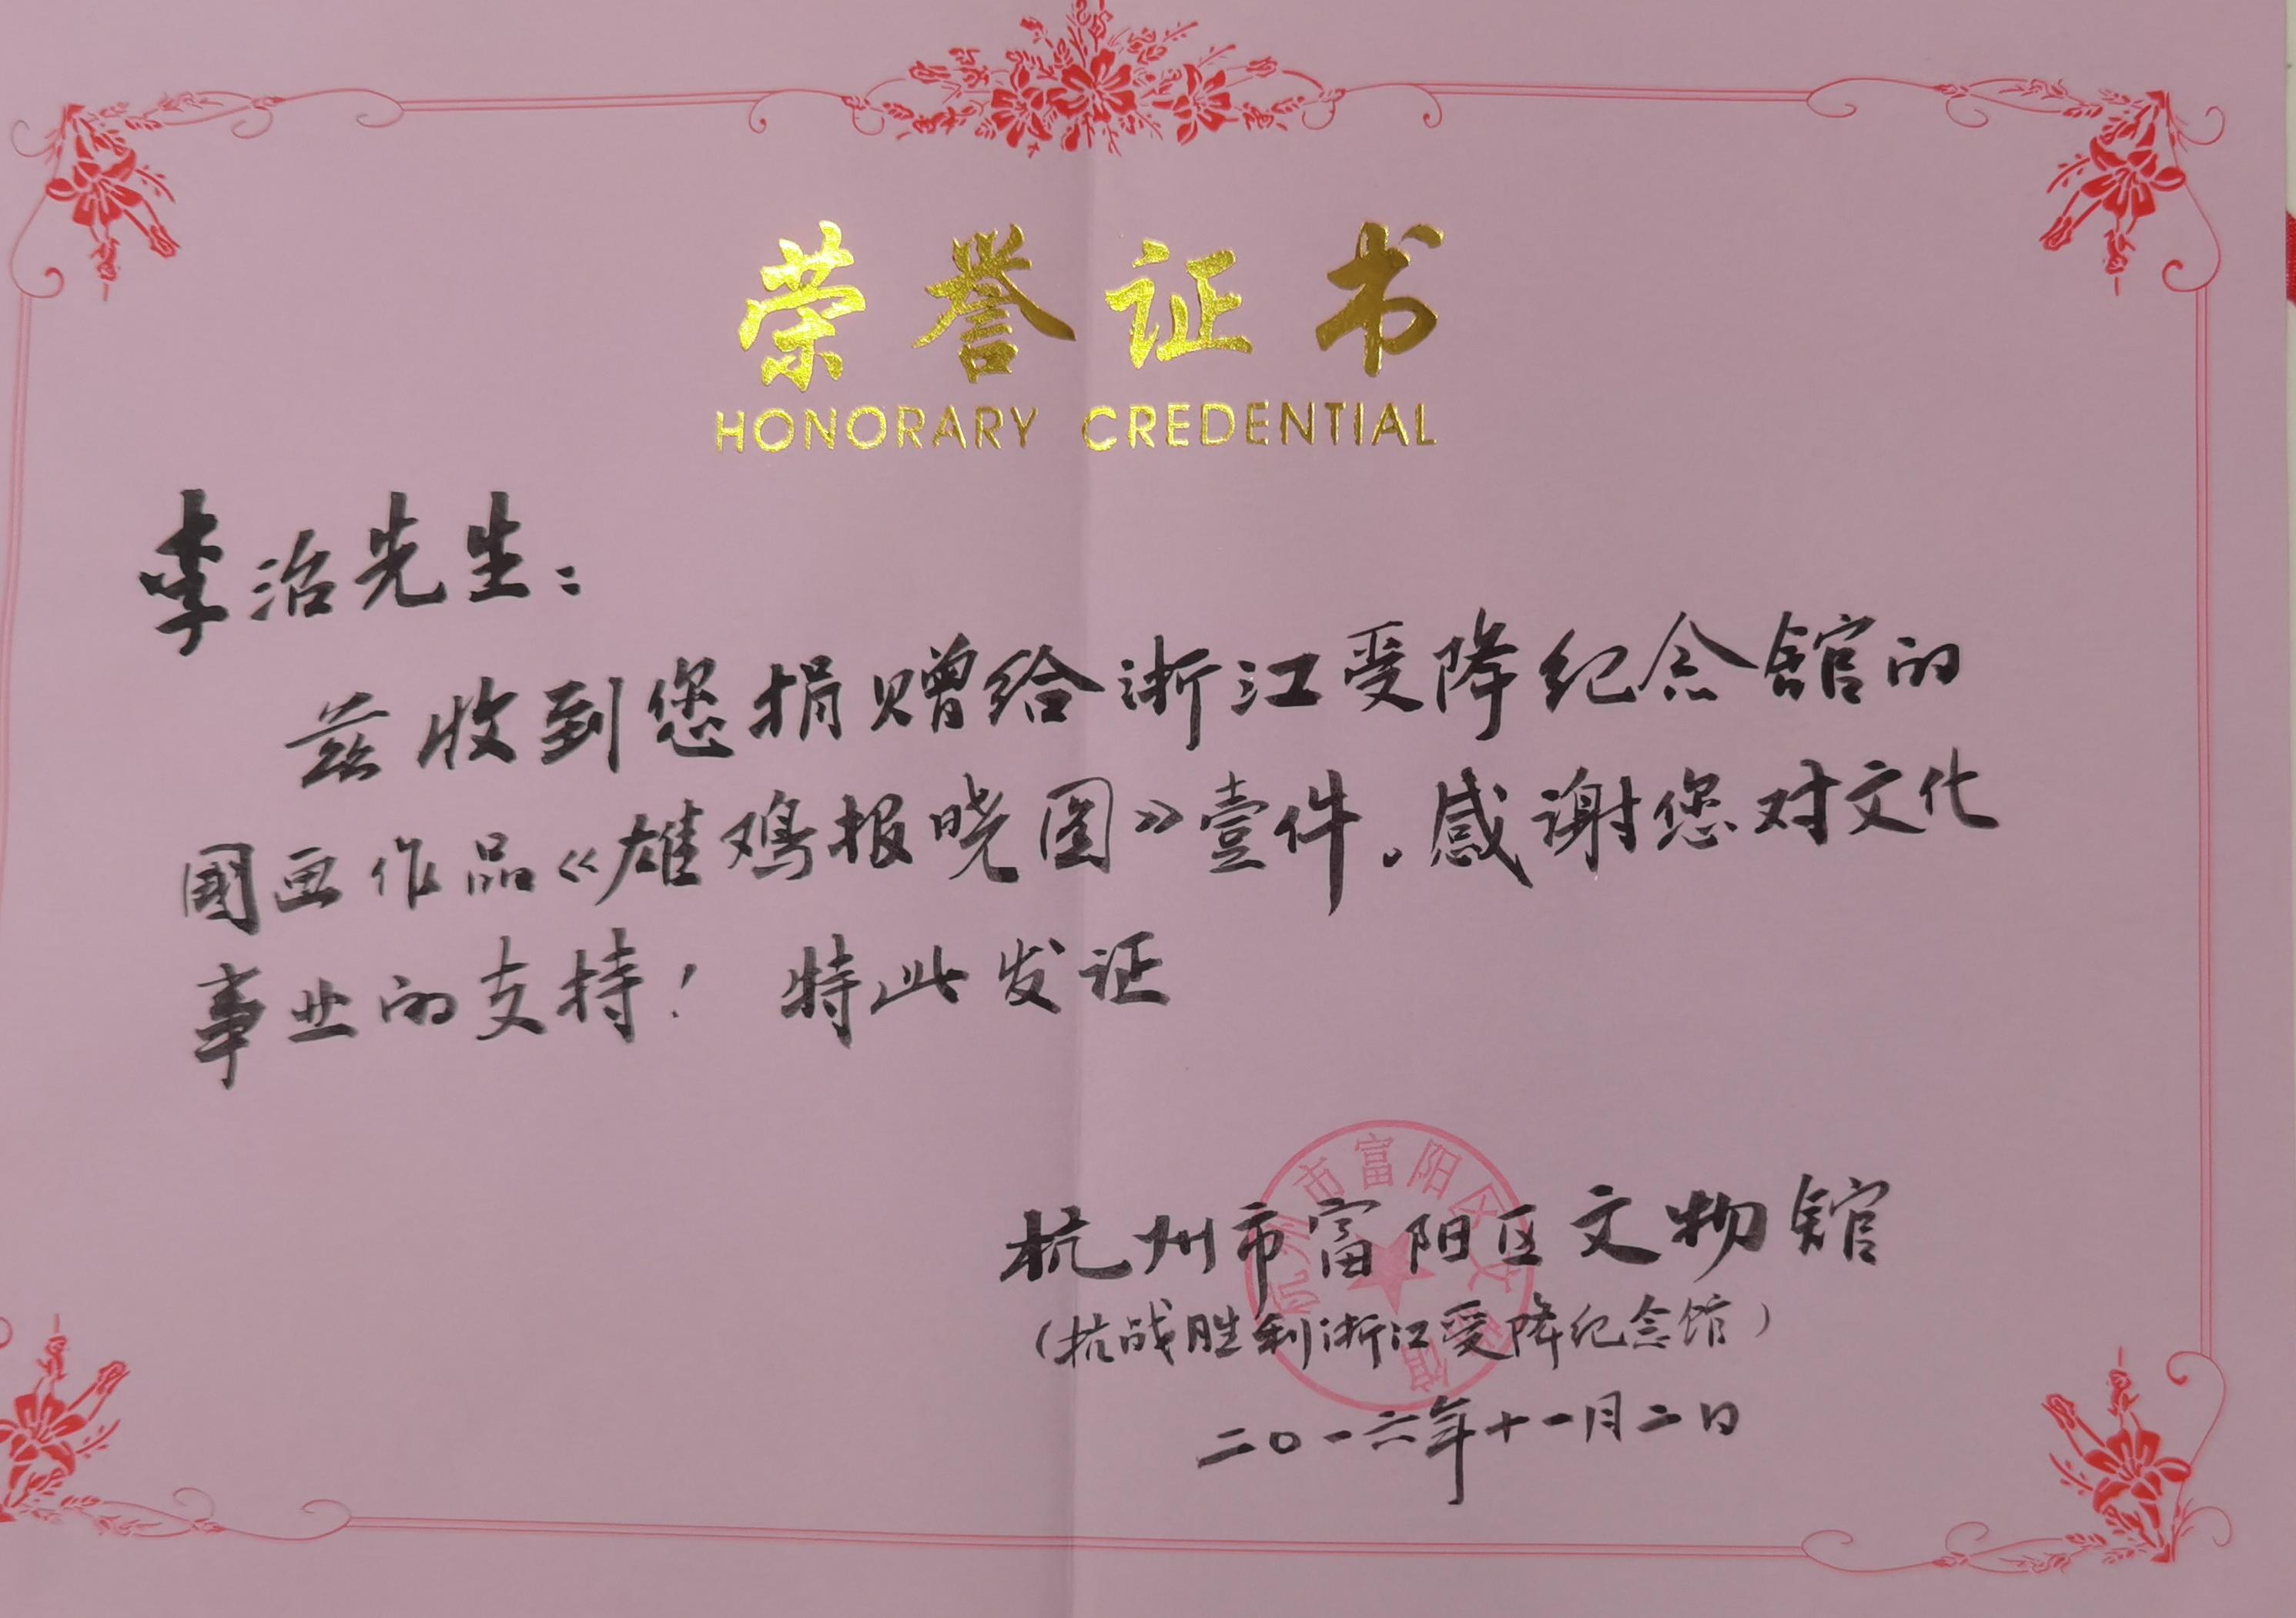 荣誉证书
HONORARY CREDENTIAL
李治先生：
兹收到您捐赠给浙江受降纪念馆的
国画作品《雄鸡报晓图》壹件。感谢您对文化
事业的支持！特此发证
杭州市富阳区文物馆
（抗战胜利浙江受降纪念馆）
二〇一六年十一月二日
杭州市富阳区文物馆